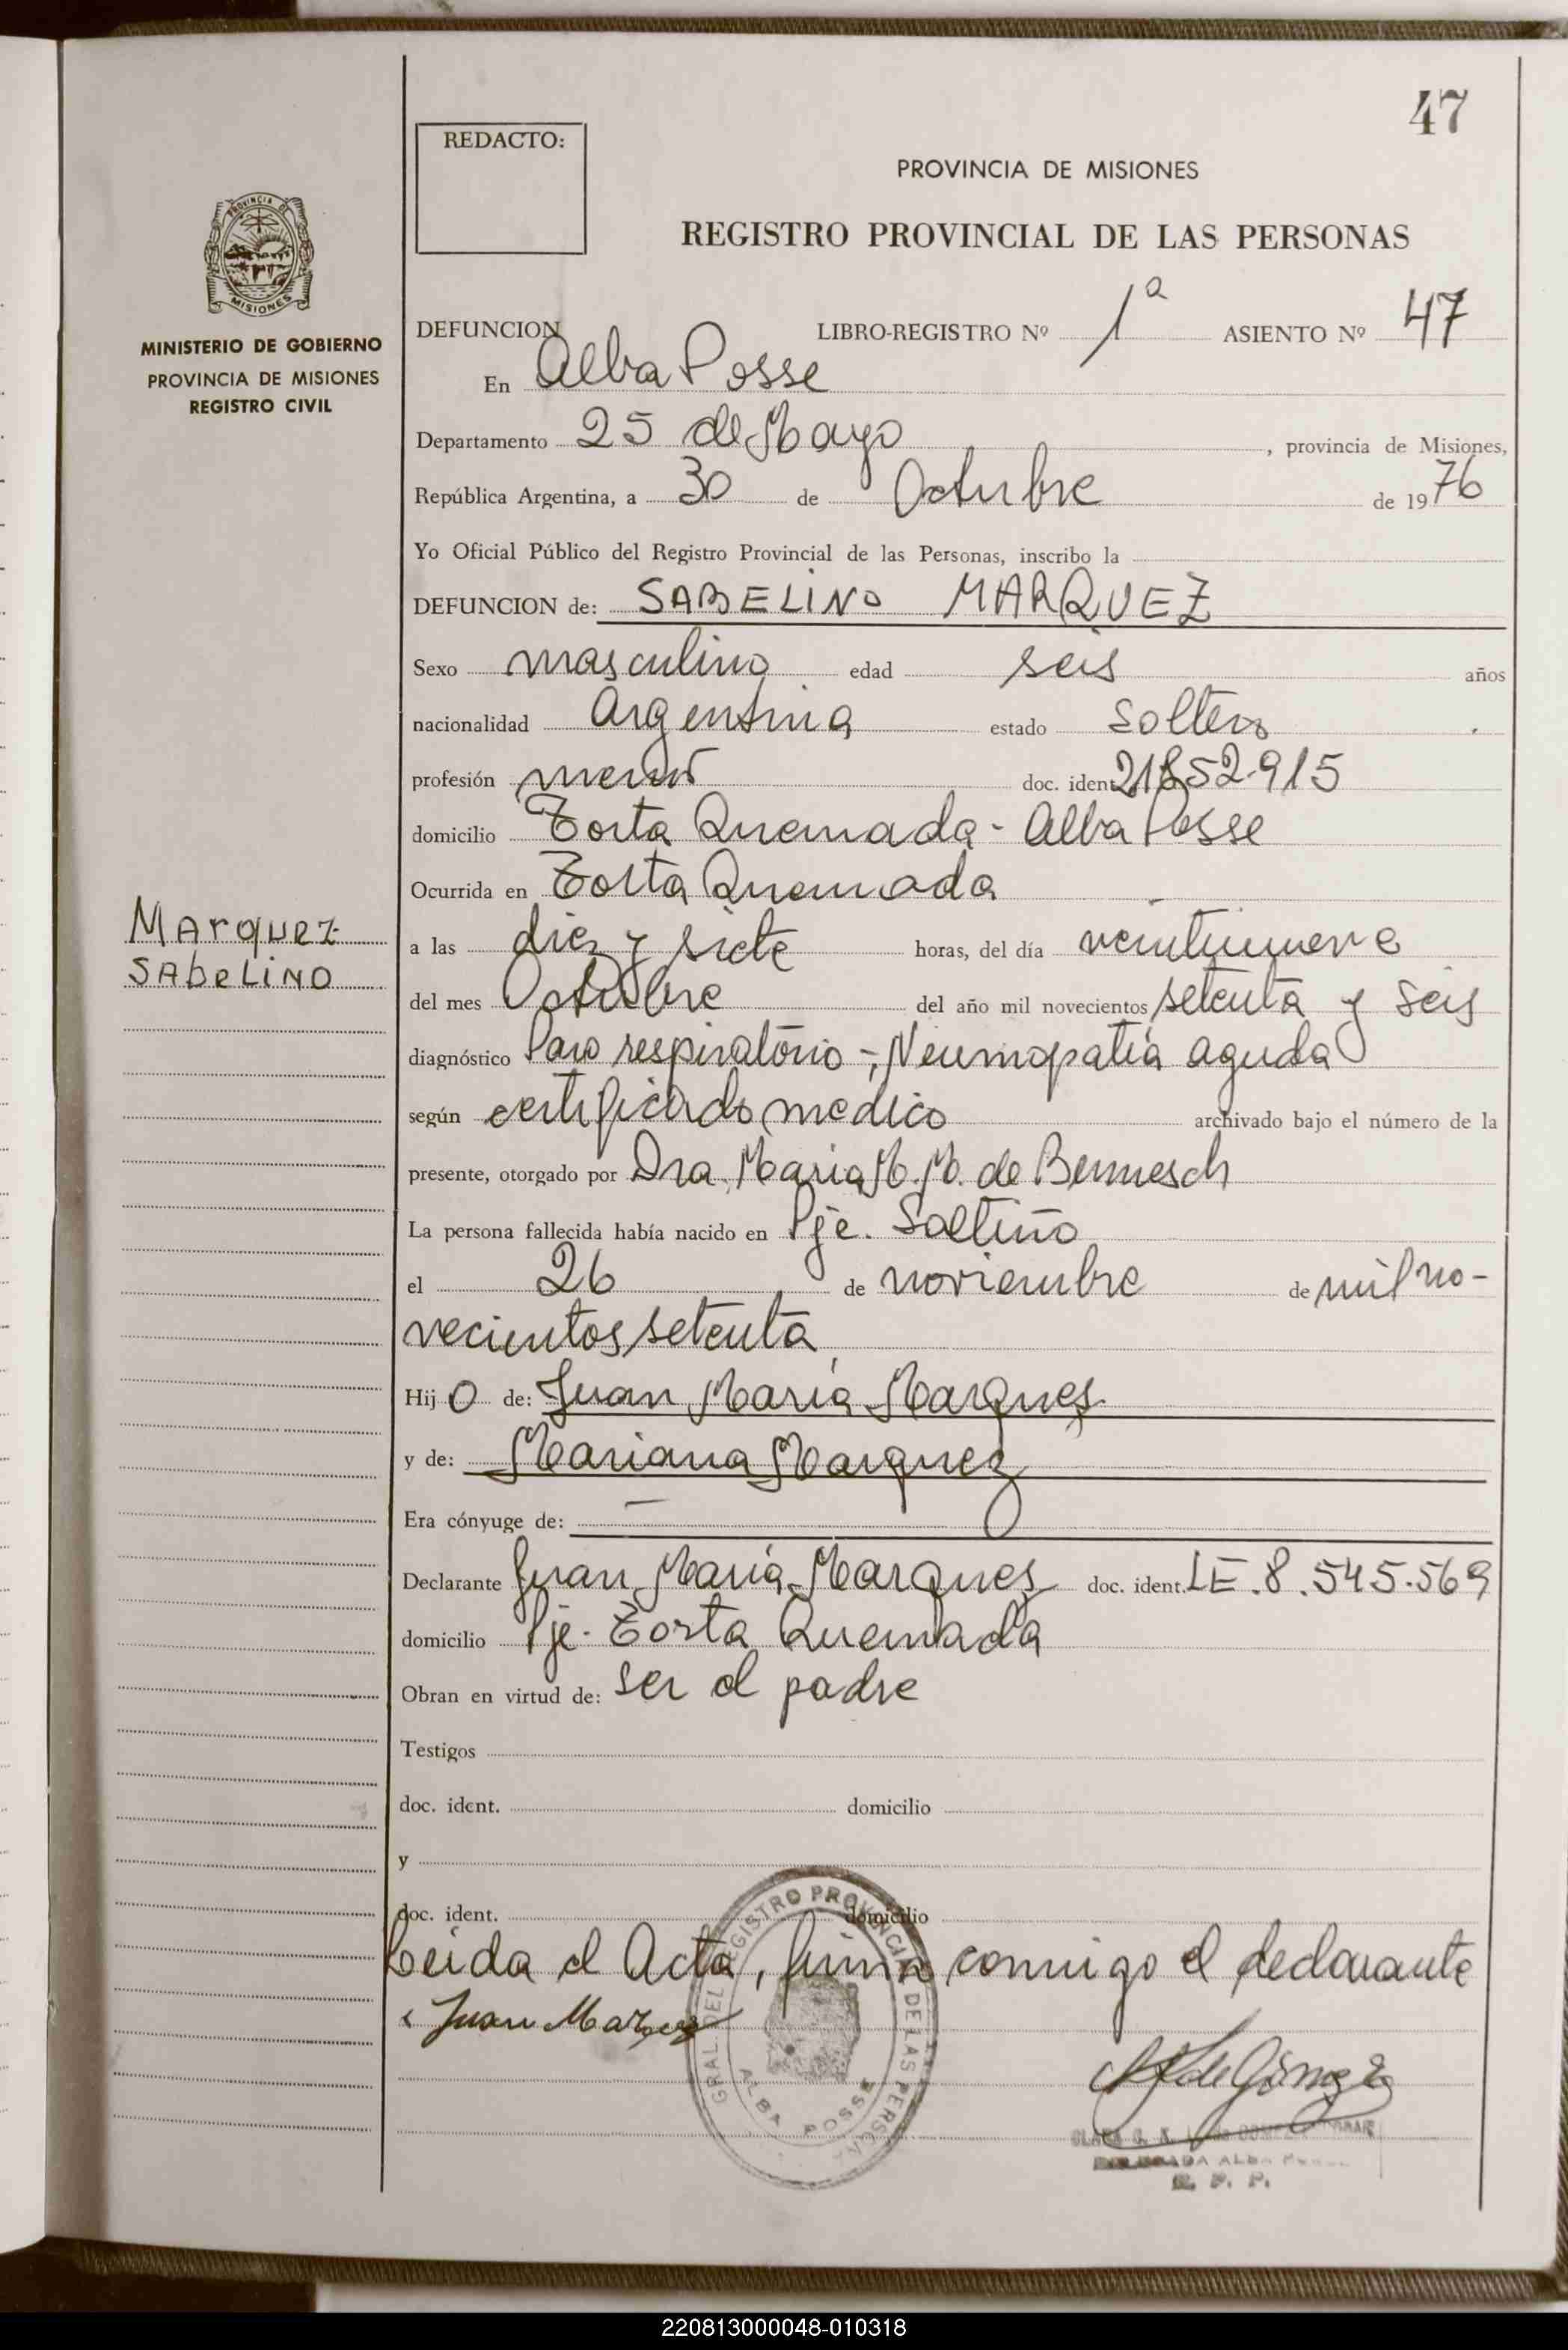 47
REDACTO:
PROVINCIA DE MISIONES
REGISTRO PROVINCIAL DE LAS PERSONAS
PROVINCIA DE
MISIONES
MINISTERIO DE GOBIERNO
PROVINCIA DE MISIONES
REGISTRO CIVIL
DEFUNCION LIBRO-REGISTRO Nº 1ª ASIENTO Nº 47
En Alba Posse
Departamento 25 de Mayo, provincia de Misiones,
República Argentina, a 30 de Octubre de 1976
Yo Oficial Público del Registro Provincial de las Personas, inscribo la
DEFUNCION de: SABELINO MARQUEZ
Sexo masculino edad seis años
nacionalidad Argentina estado soltero
profesión menor doc. ident. 21.852.915
domicilio Torta Quemada - Alba Posse
Ocurrida en Torta Quemada
Marquez
Sabelino
a las diez y siete horas, del día veintinueve
del mes Octubre del año mil novecientos setenta y seis
diagnóstico Paro respiratorio -, Neumopatía aguda
según certificado medico archivado bajo el número de la
presente, otorgado por Dra. Maria M. M. de Bennesch
La persona fallecida había nacido en Pje. Saltiño
el 26 de noviembre de mil no-
vecientos setenta
Hijo de: Juan María Marques
y de: Mariana Marquez
Era cónyuge de: —
Declarante Juan María Marques doc. ident. LE. 8.545.569
domicilio Pje. Torta Quemada
Obran en virtud de: ser el padre
Testigos
doc. ident. domicilio
y
doc. ident. domicilio
Leida el Acta, firma conmigo el declarante
Juan Marques
GRAL. DEL REGISTRO PROVINCIAL DE LAS PERSONAS
ALBA POSSE
220813000048-010318